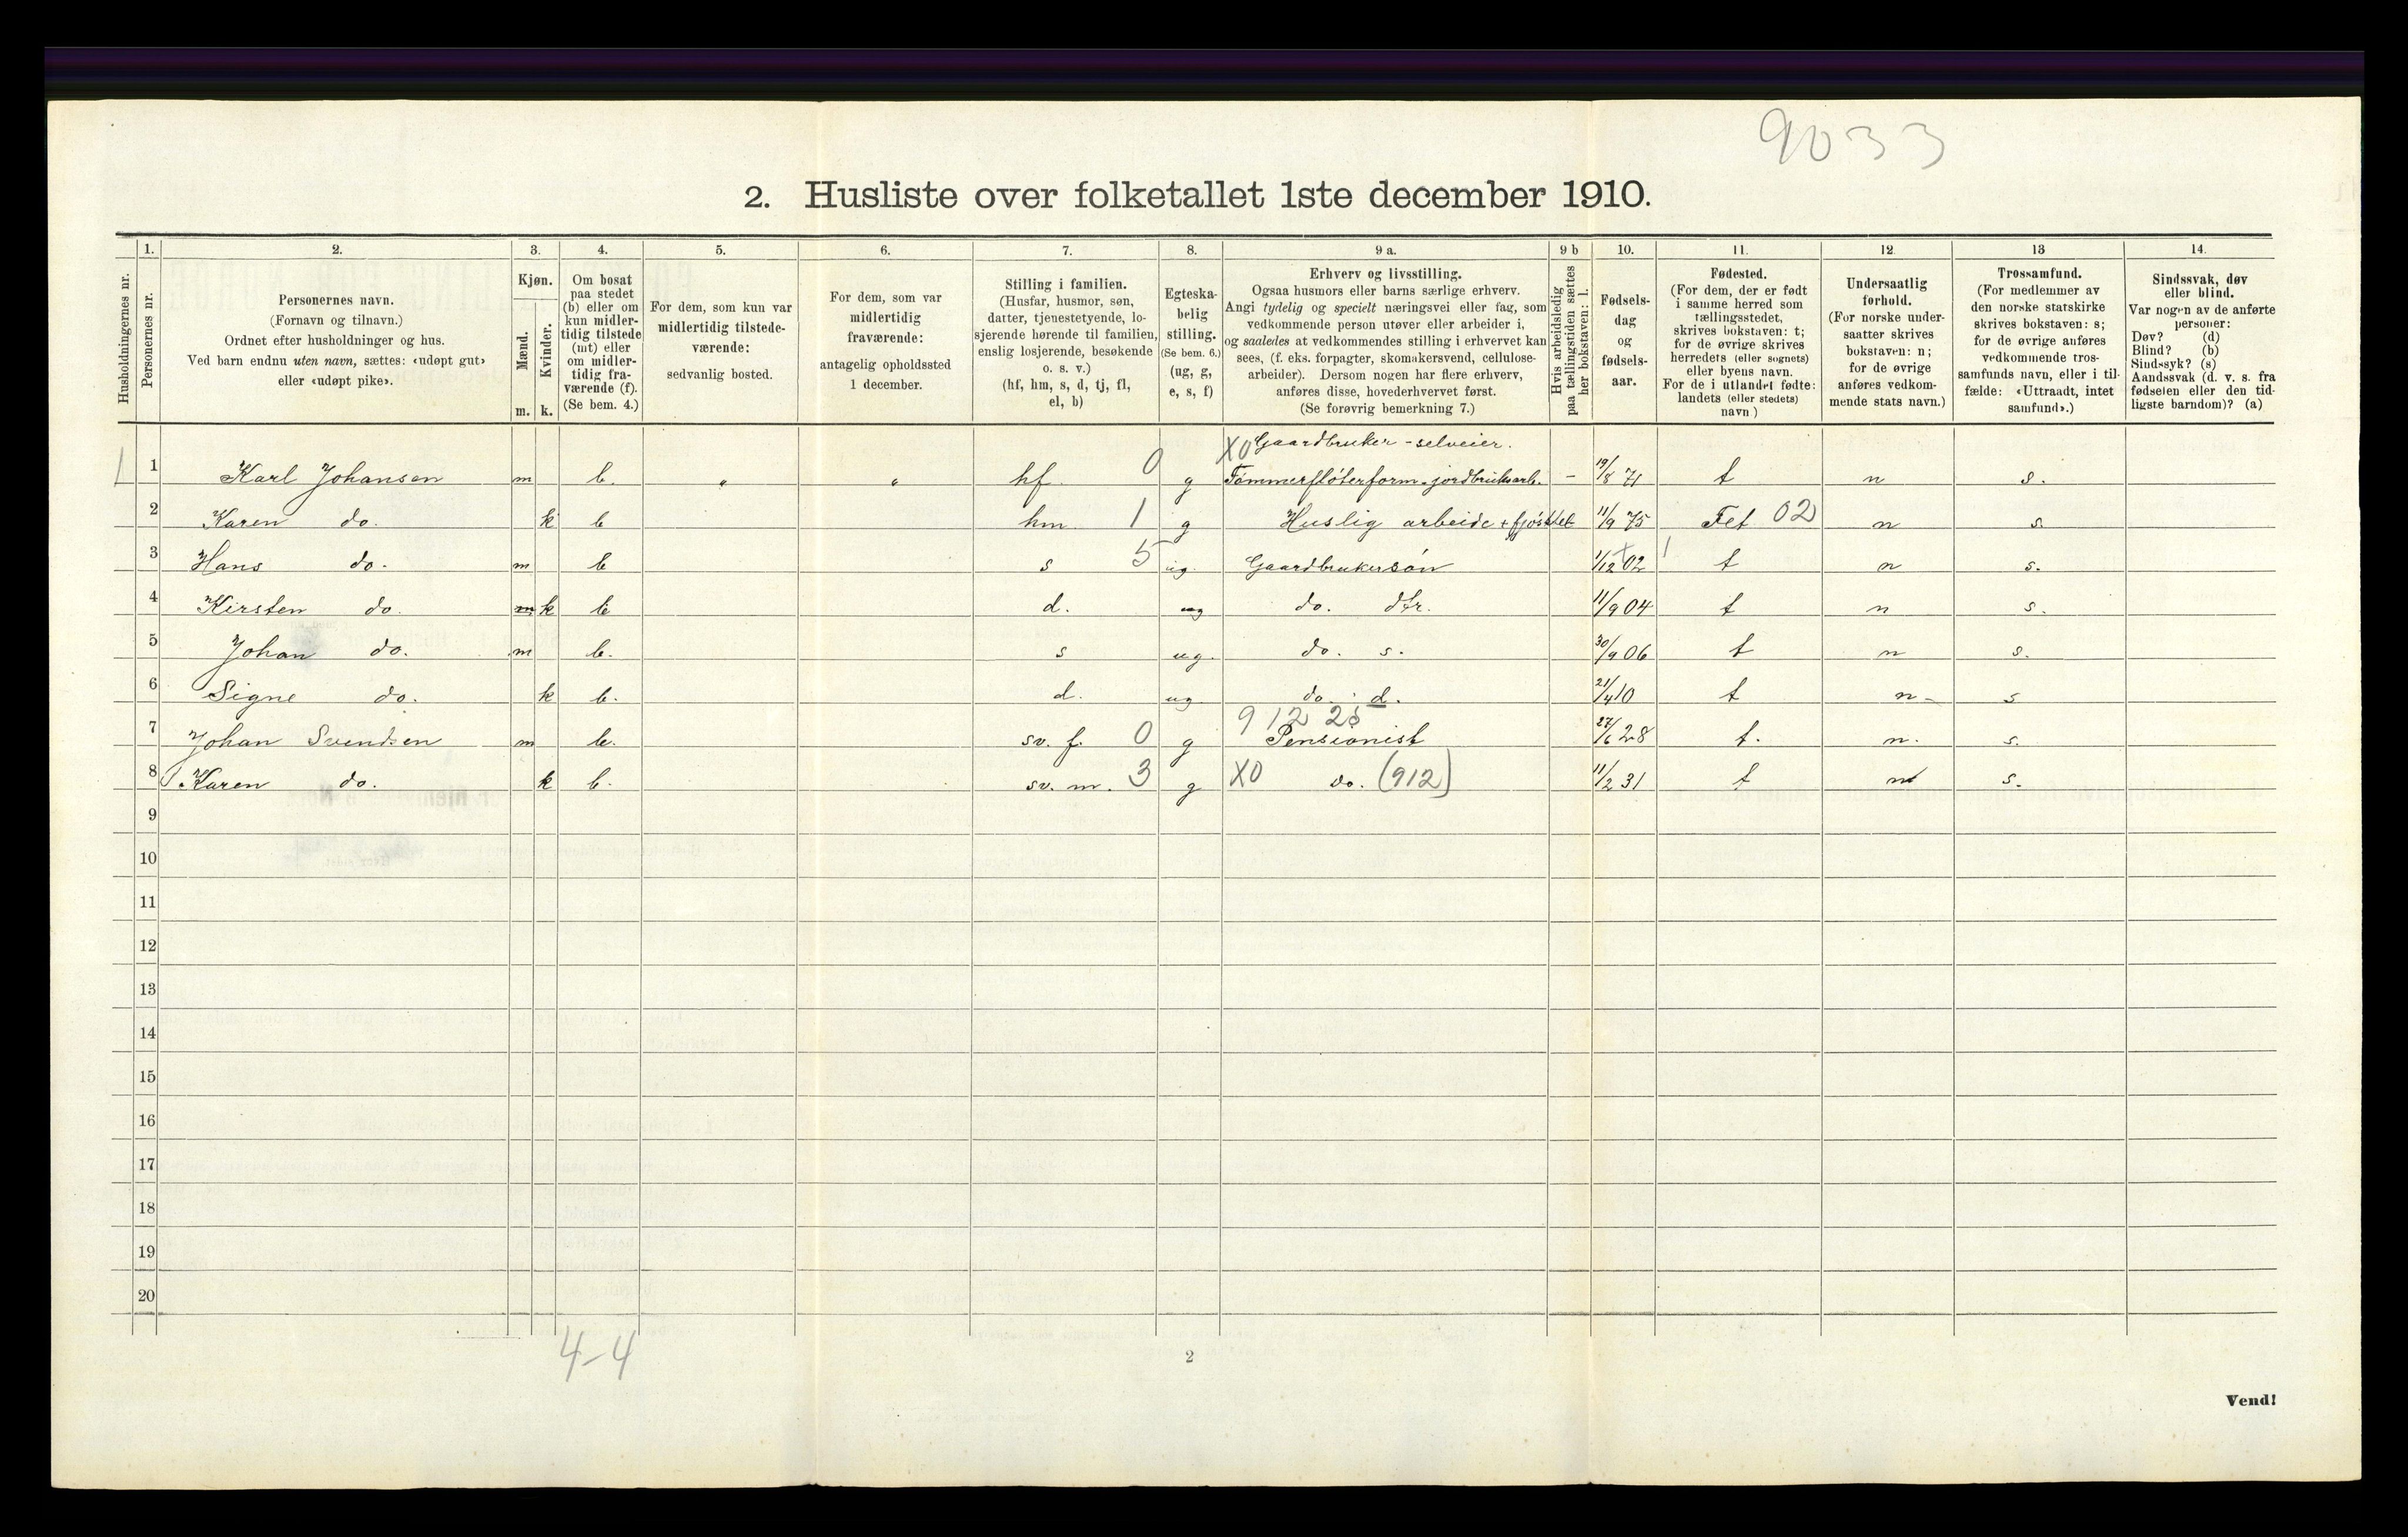 9033
2. Husliste over folketallet 1ste december 1910.
Husholdningernes nr.
1.
Personernes nr.
2.
Personernes navn.
(Fornavn og tilnavn.)
Ordnet efter husholdninger og hus.
Ved barn endnu uten navn, sættes: «udøpt gut»
eller «udøpt pike».
3.
Kjøn.
Mænd.
Kvinder.
m. k.
4.
Om bosat
paa stedet
(b) eller om
kun midler-
tidig tilstede
(mt) eller
om midler-
tidig fra-
værende (f).
(Se bem. 4.)
5.
For dem, som kun var
midlertidig tilstede-
værende:
sedvanlig bosted.
6.
For dem, som var
midlertidig
fraværende:
antagelig opholdssted
1 december.
7.
Stilling i familien.
(Husfar, husmor, søn,
datter, tjenestetyende, lo-
sjerende hørende til familien,
enslig losjerende, besøkende
o. s. v.)
(hf, hm, s, d, tj, fl,
el, b)
8.
Egteska-
belig
stilling.
(Se bem. 6.)
(ug, g,
e, s, f)
9 a.
Erhverv og livsstilling.
Ogsaa husmors eller barns særlige erhverv.
Angi tydelig og specielt næringsvei eller fag, som
vedkommende person utøver eller arbeider i,
og saaledes at vedkommendes stilling i erhvervet kan
sees, (f. eks. forpagter, skomakersvend, cellulose-
arbeider). Dersom nogen har flere erhverv,
anføres disse, hovederhvervet først.
(Se forøvrig bemerkning 7.)
9 b
Hvis arbeidsledig
paa tællingstiden sættes
her bokstaven: l.
10.
Fødsels-
dag
og
fødsels-
aar.
11.
Fødested.
(For dem, der er født
i samme herred som
tællingsstedet,
skrives bokstaven: t;
for de øvrige skrives
herredets (eller sognets)
eller byens navn.
For de i utlandet fødte:
landets (eller stedets)
navn )
12.
Undersaatlig
forhold.
(For norske under-
saatter skrives
bokstaven: n;
for de øvrige
anføres vedkom-
mende stats navn.)
13
Trossamfund.
(For medlemmer av
den norske statskirke
skrives bokstaven: s;
for de øvrige anføres
vedkommende tros-
samfunds navn, eller i til-
fælde: «Uttraadt, intet
samfund».)
14.
Sindssvak, døv
eller blind.
Var nogen av de anførte
personer:
Døv? (d)
Blind? (b)
Sindssyk? (s)
Aandssvak (d. v. s. fra
fødselen eller den tid-
ligste barndom)? (a)
X0 Gaardbruker - selveier.
1 1 Karl Johansen m b. " " hf. 0 g Tømmerfløterform. jordbruksarb. - 19/8 71 t n s.
2 Karen do. k b hm 1 g Huslig arbeide + fjøsstel 11/9 75 Fet 02 n s.
3 Hans do. m b s 5 ug. Gaardbrukersøn 1/12 02 t n s.
4 Kirsten do. m k b d. ug do. dtr. 11/9 04 t n s.
5 Johan do. m b. s ug. do. s. 30/9 06 t n s.
6 Signe do. k b. d. ug do. d. 21/4 10 t n - s
9 12 28
7 Johan Svendsen m b. sv. f. 0 g Pensionist 27/6 28 t. n. s.
8 Karen do. k b. sv. m. 3 g X0 do. (912) 11/2 31 t n s.
9
10
11
12
13
14
15
16
17
18
19
20
4-4
2
Vend!